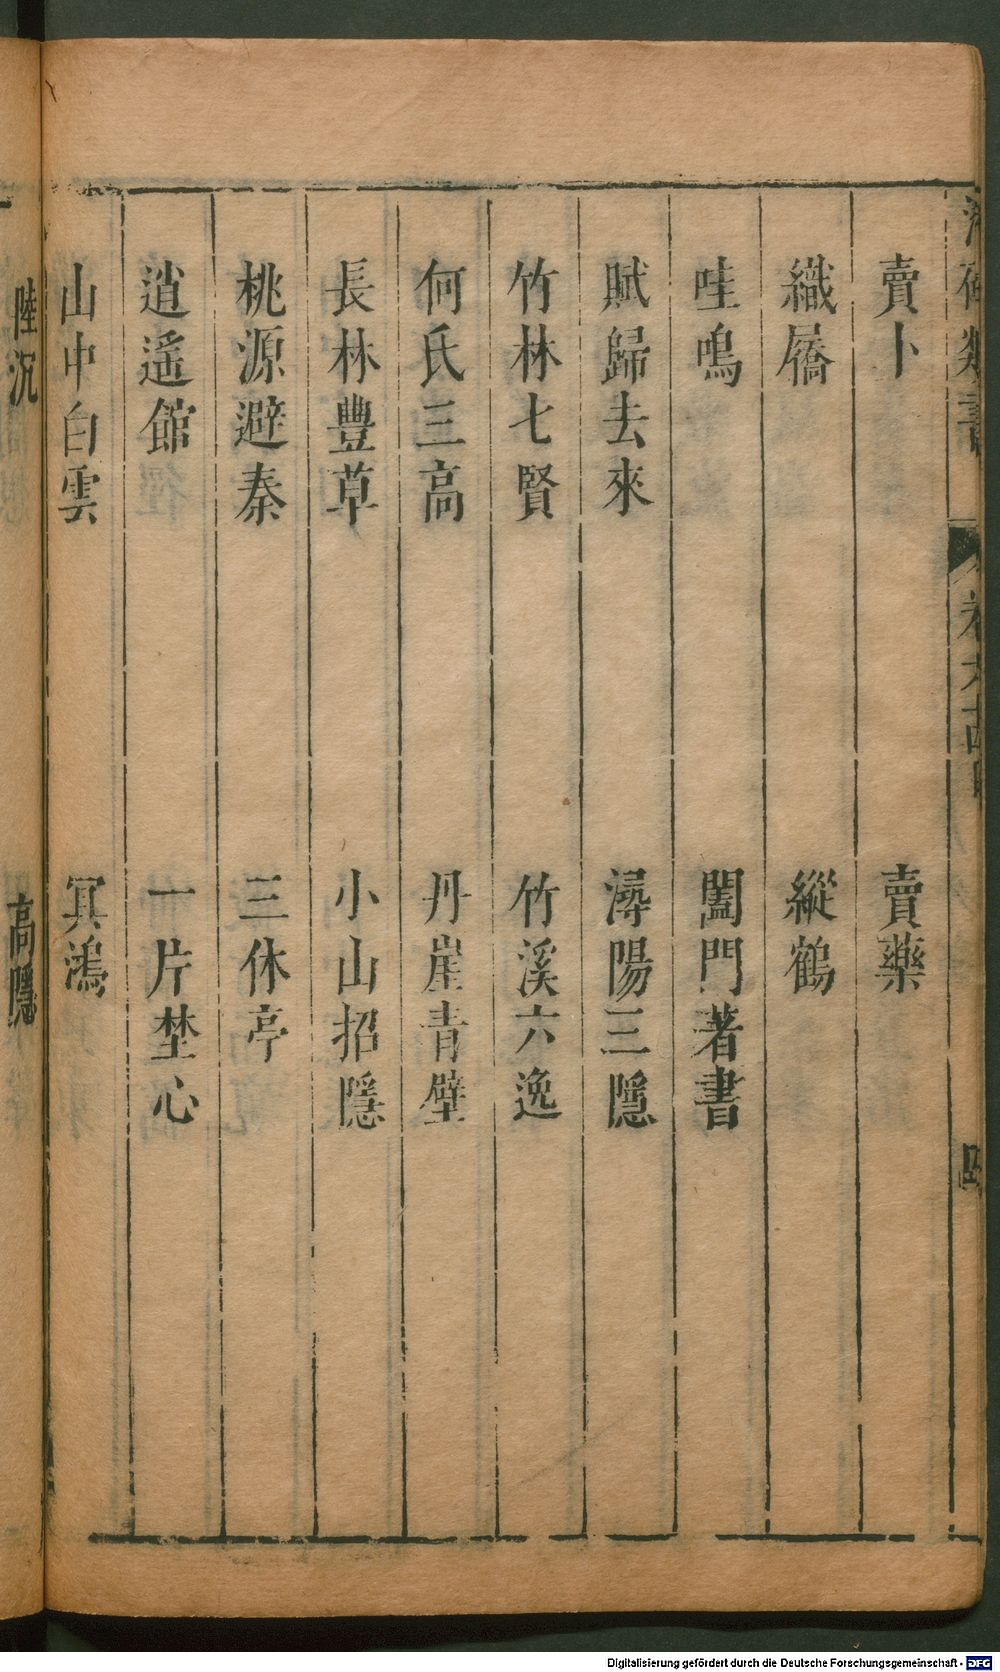 賣卜　賣藥
織屩　縱鶴
哇鳴　闔門著書
賦歸去來　潯陽三隱
竹林七賢　竹溪六逸
何氏三高　丹崖青壁
長林豐草　小山招隱
桃源避秦　三休亭
逍遙館　一片埜心
山中白雲　冥鴻
陸沉　高隱
Digitalisierung gefördert durch die Deutsche Forschungsgemeinschaft - DFG